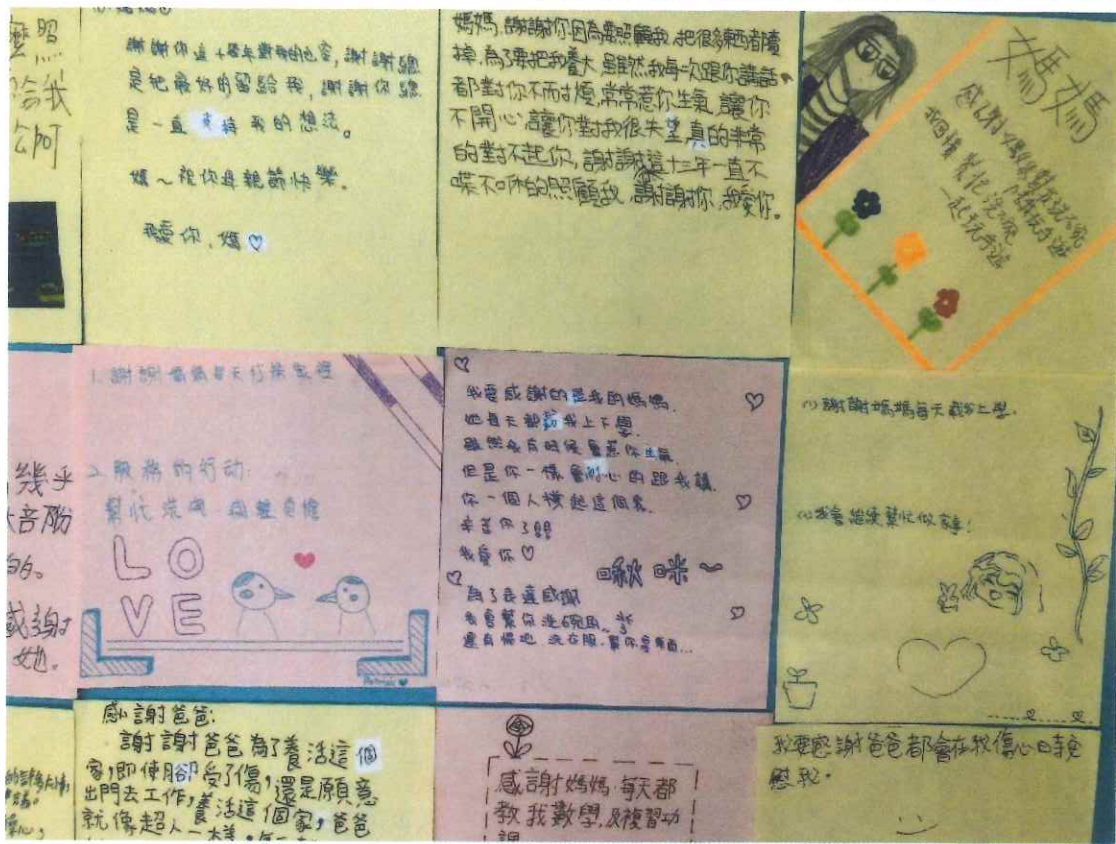 麼照
給我
公阿
謝謝你這十幾年對我的包容,謝謝總
是把最好的留給我,謝謝你總
是一直支持我的想法。
媽～祝你母親節快樂。
我愛你,媽♡
媽媽,謝謝你因為要照顧我,把很多東西都賣
掉,為了要把我養大,雖然我每次跟你講話
都對你不耐煩,常常惹你生氣,讓你
不開心,讓你對我很失望,真的非常
的對不起你,謝謝這十三年一直不
喋不休的照顧我,謝謝你,我愛你。
媽媽
感謝媽媽
我回饋 幫忙洗碗
一起玩手遊
幾乎
的。
感謝
她。
1.謝謝媽媽每天
2.服務的行动:
幫忙
LO
VE
我要感謝的是我的媽媽.
她每天都載我上下學.
雖然我有時候會惹你生氣
但是你一樣會耐心的跟我講.
你一個人撐起這個家.
辛苦你了
我愛你♡
啾咪～
為了表達感謝
我會幫你洗碗
還有掃地 洗衣服.幫你
(1)謝謝媽媽每天載我上學.
(2)我會繼續幫忙做家事!
感謝爸爸:
謝謝爸爸為了養活這個
家,即使腳受了傷,還是願意
出門去工作,養活這個家,爸爸
就像超人一樣,
感謝媽媽,每天都
教我數學,及複習功
課
我要感謝爸爸都會在我傷心時安
慰我。